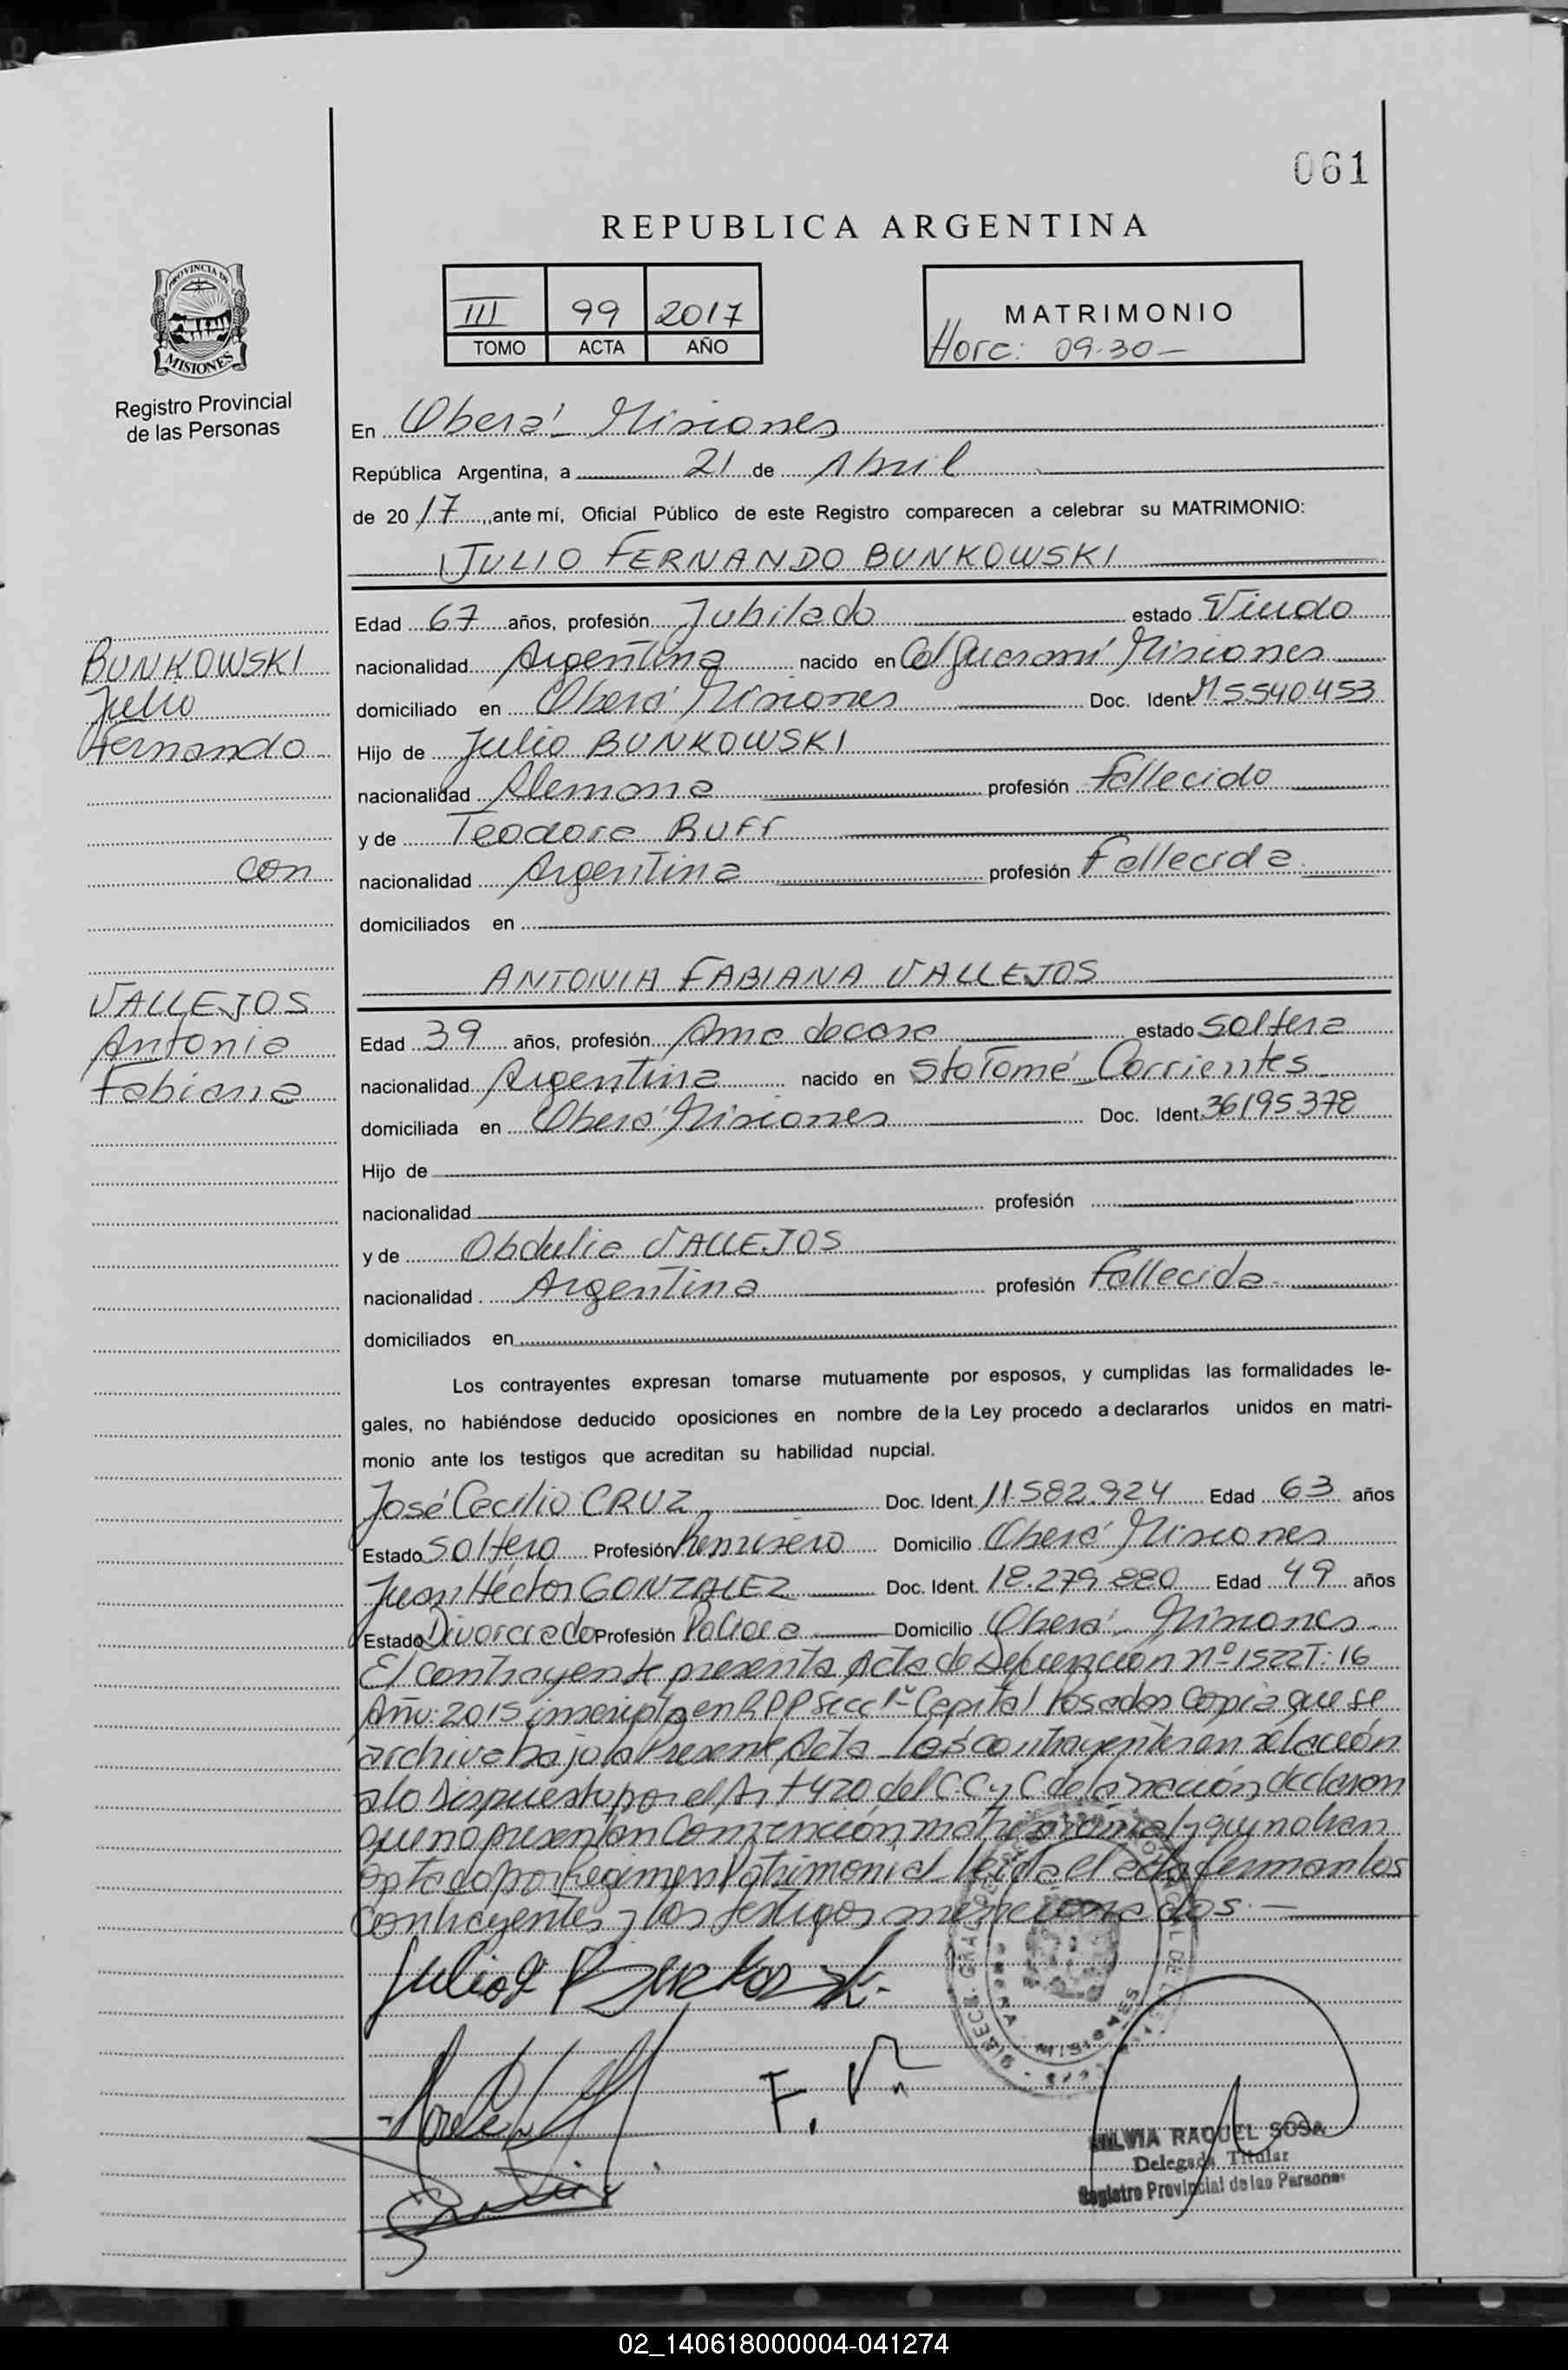 061
REPUBLICA ARGENTINA
PROVINCIA DE
MISIONES
Registro Provincial
de las Personas
III 99 2017
TOMO ACTA AÑO
MATRIMONIO
Hora: 09.30-
En Oberá - Misiones
República Argentina, a 21 de Abril
de 2017, ante mí, Oficial Público de este Registro comparecen a celebrar su MATRIMONIO:
JULIO FERNANDO BUNKOWSKI
BUNKOWSKI
Julio
Fernando
con
VALLEJOS
Antonia
Fabiana
Edad 67 años, profesión Jubilado estado Viudo
nacionalidad Argentina nacido en Cel Guaraní Misiones
domiciliado en Oberá Misiones Doc. Ident M5540.453
Hijo de Julio BUNKOWSKI
nacionalidad Alemana profesión Fallecido
y de Teodora RUFF
nacionalidad Argentina profesión Fallecida
domiciliados en
ANTONIA FABIANA VALLEJOS
Edad 39 años, profesión Ama de casa estado Soltera
nacionalidad Argentina nacido en Sto Tomé - Corrientes
domiciliada en Oberá Misiones Doc. Ident. 36195378
Hijo de
nacionalidad profesión
y de Obdulia VALLEJOS
nacionalidad Argentina profesión Fallecida
domiciliados en
Los contrayentes expresan tomarse mutuamente por esposos, y cumplidas las formalidades le-
gales, no habiéndose deducido oposiciones en nombre de la Ley procedo a declararlos unidos en matri-
monio ante los testigos que acreditan su habilidad nupcial.
José Cecilio CRUZ Doc. Ident. 11.582.924 Edad 63 años
Estado Soltero Profesión Remisero Domicilio Oberá Misiones
Juan Héctor GONZALEZ Doc. Ident. 18.279.880 Edad 49 años
Estado Divorciado Profesión Policía Domicilio Oberá - Misiones
El contrayente presenta Acta de Defunción nº 1522 T: 16
Año: 2015 inscripta en RPP Secc 1º Capital Posadas Copia que se
archiva bajo la Presente Acta - Los contrayentes en relación
a lo Dispuesto por el Art 420 del C.C y C de la nación, declaran
que no presentan Convención matrimonial y que no han
optado por Regimen Patrimonial - leida el acta firman los
Contrayentes y los testigos mencionados. -
F. V.
SILVIA RAQUEL SOSA
Delegada Titular
Registro Provincial de las Personas
02_140618000004-041274